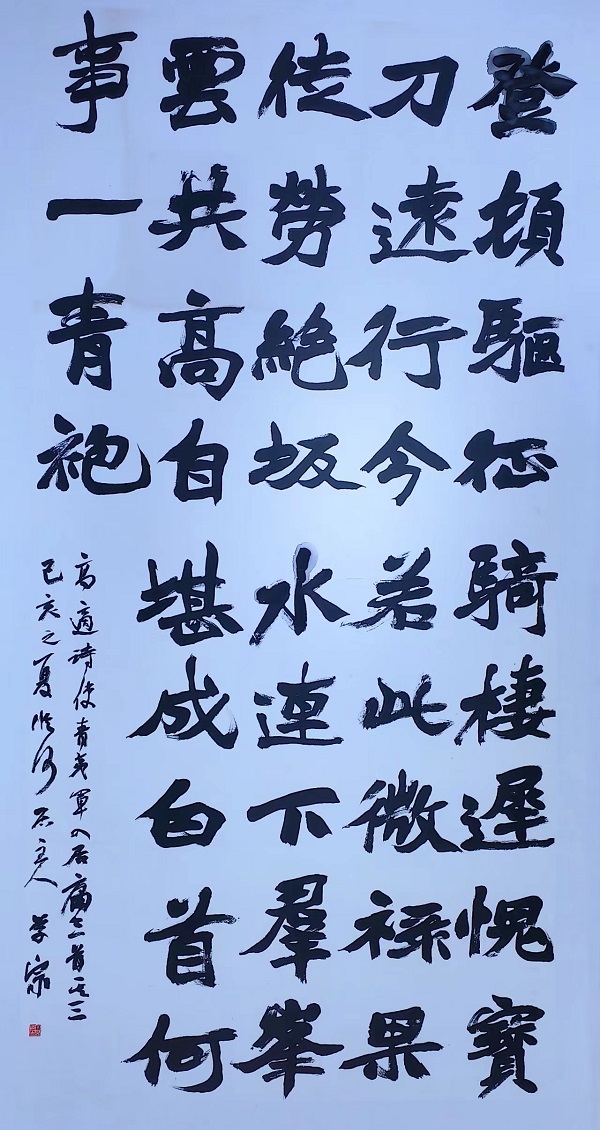 登頓驅征騎棲遲愧寶
刀遠行今若此微祿果
徒勞絕坂水連下羣峯
雲共高自堪成白首何
事一青袍
高適詩使青夷軍入居庸三首其三
己亥之夏 主人